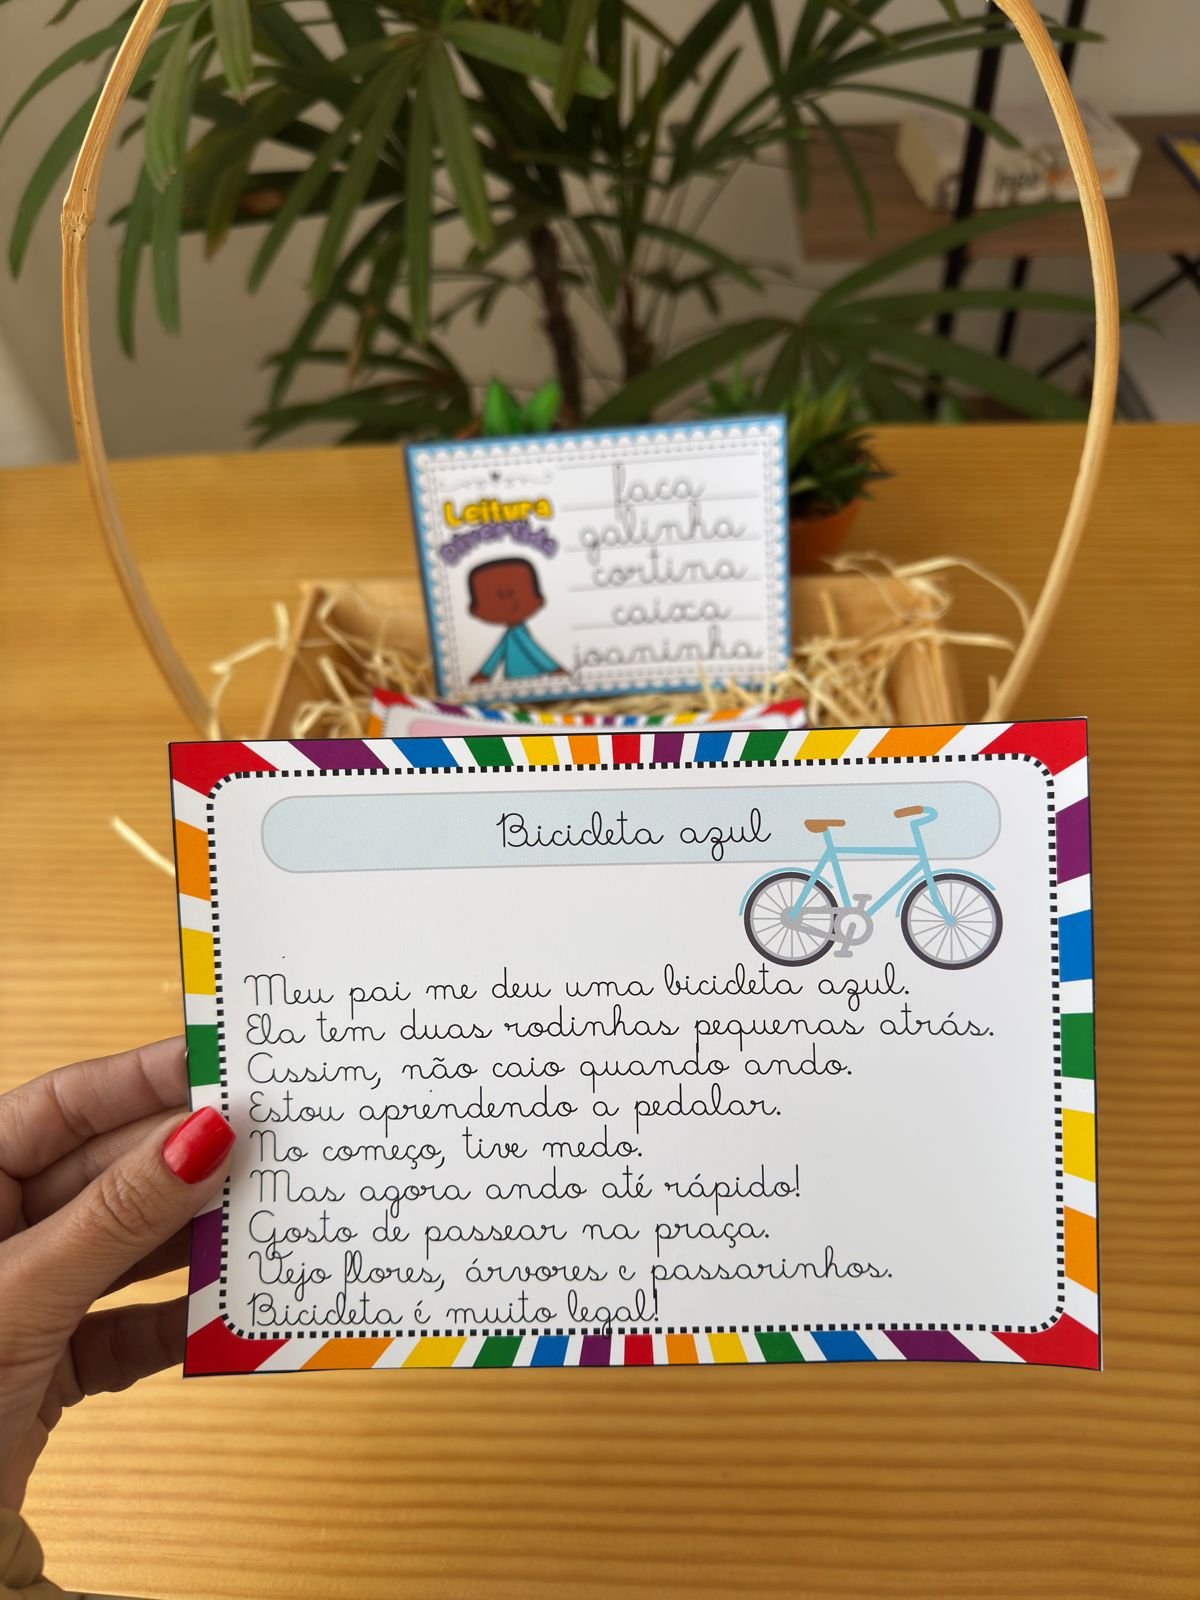 Leitura
Divertida
faca
galinha
cortina
caixa
joaninha
Bicicleta azul
Meu pai me deu uma bicicleta azul.
Ela tem duas rodinhas pequenas atrás.
Assim, não caio quando ando.
Estou aprendendo a pedalar.
No começo, tive medo.
Mas agora ando até rápido!
Gosto de passear na praça.
Vejo flores, árvores e passarinhos.
Bicicleta é muito legal!